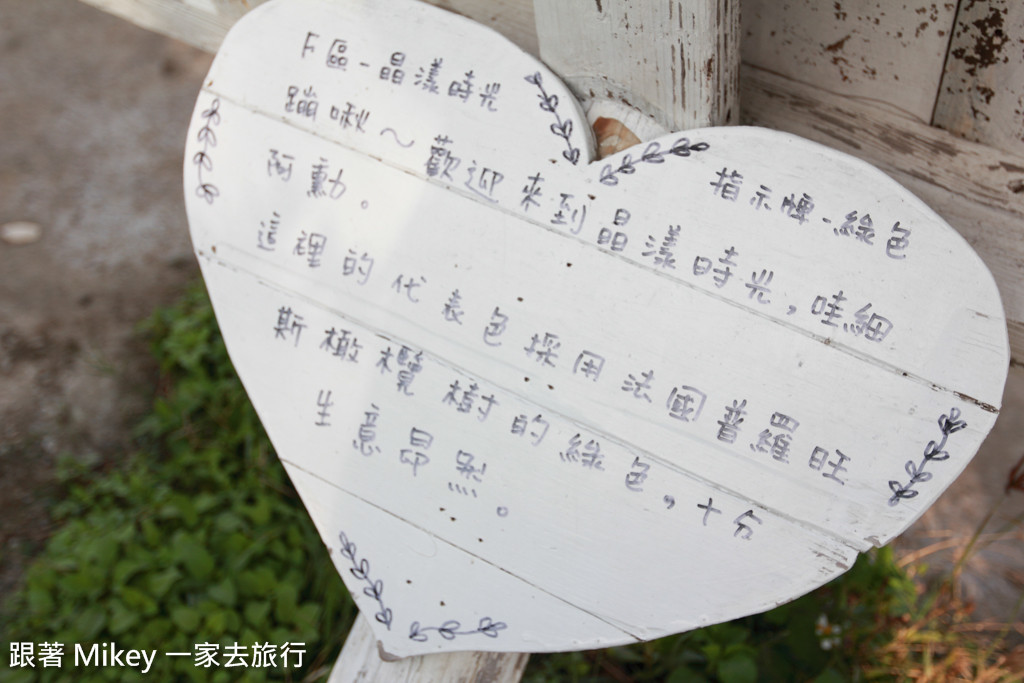 F區-晶漾時光
指示牌-綠色
蹦啾～歡迎來到晶漾時光，哇細
阿勳。
這裡的代表色採用法國普羅旺
斯橄欖樹的綠色，十分
生意昂然。
跟著 Mikey 一家去旅行